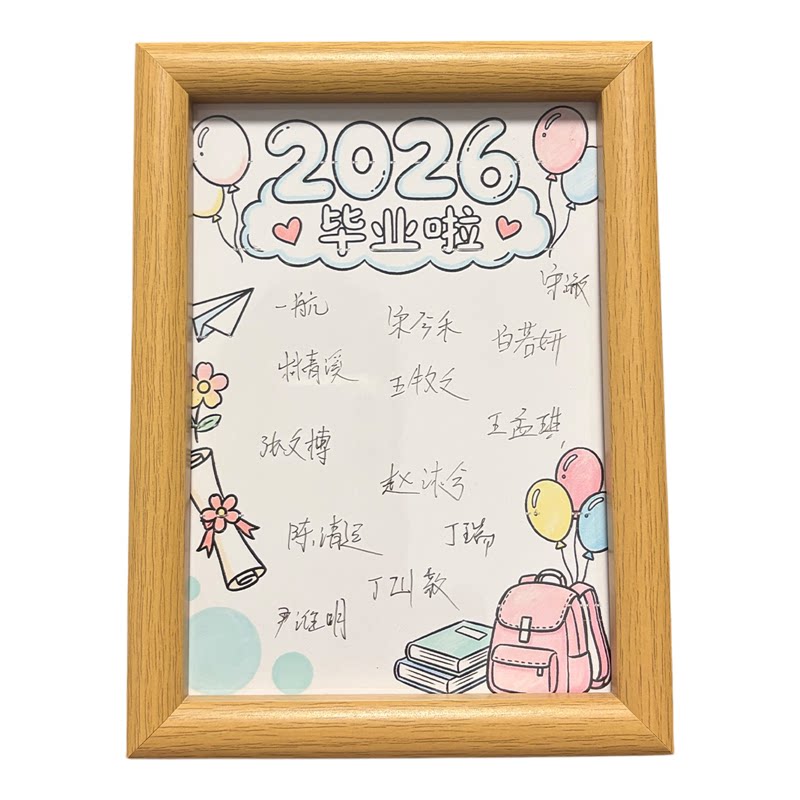 2026
毕业啦
宋
一航
宋今禾
白若妍
林清溪
王牧之
王孟琪
张文博
赵沐兮
陈清远
丁瑞
丁
尹明